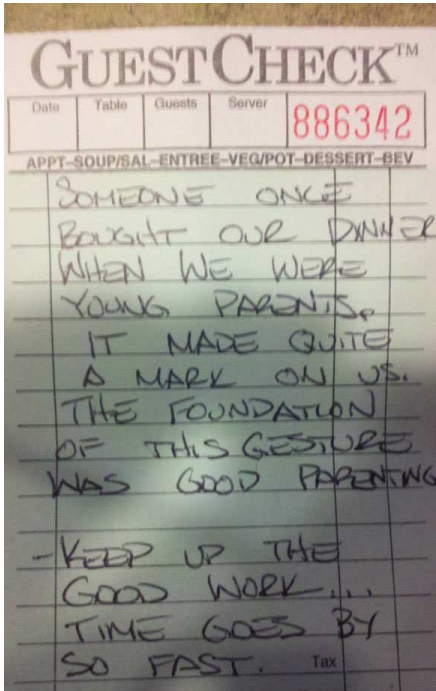 GUESTCHECK™
Date Table Guests Server 886342
APPT–SOUP/SAL–ENTREE–VEG/POT–DESSERT–BEV
SOMEONE ONCE
BOUGHT OUR DINNER
WHEN WE WERE
YOUNG PARENTS.
IT MADE QUITE
A MARK ON US.
THE FOUNDATION
OF THIS GESTURE
WAS GOOD PARENTING
-KEEP UP THE
GOOD WORK...
TIME GOES BY
SO FAST. Tax